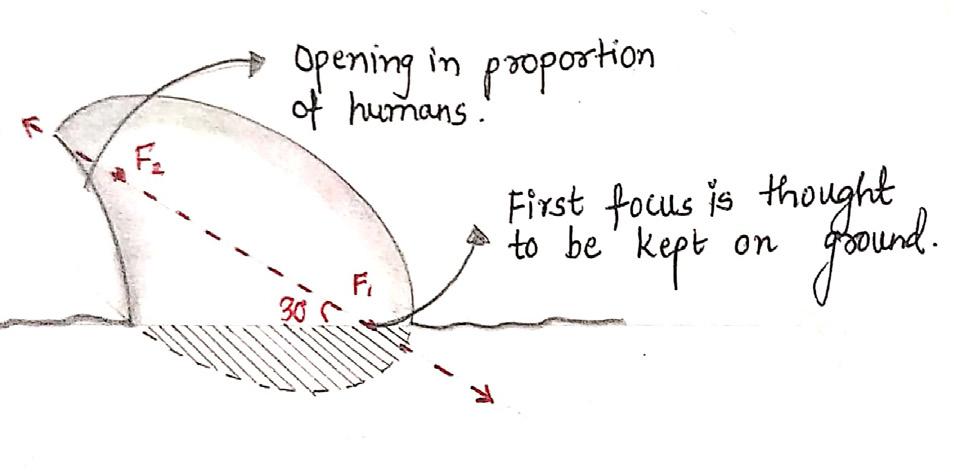 Opening in proportion
of humans.
F₂
First focus is thought
to be kept on ground.
F₁
30°